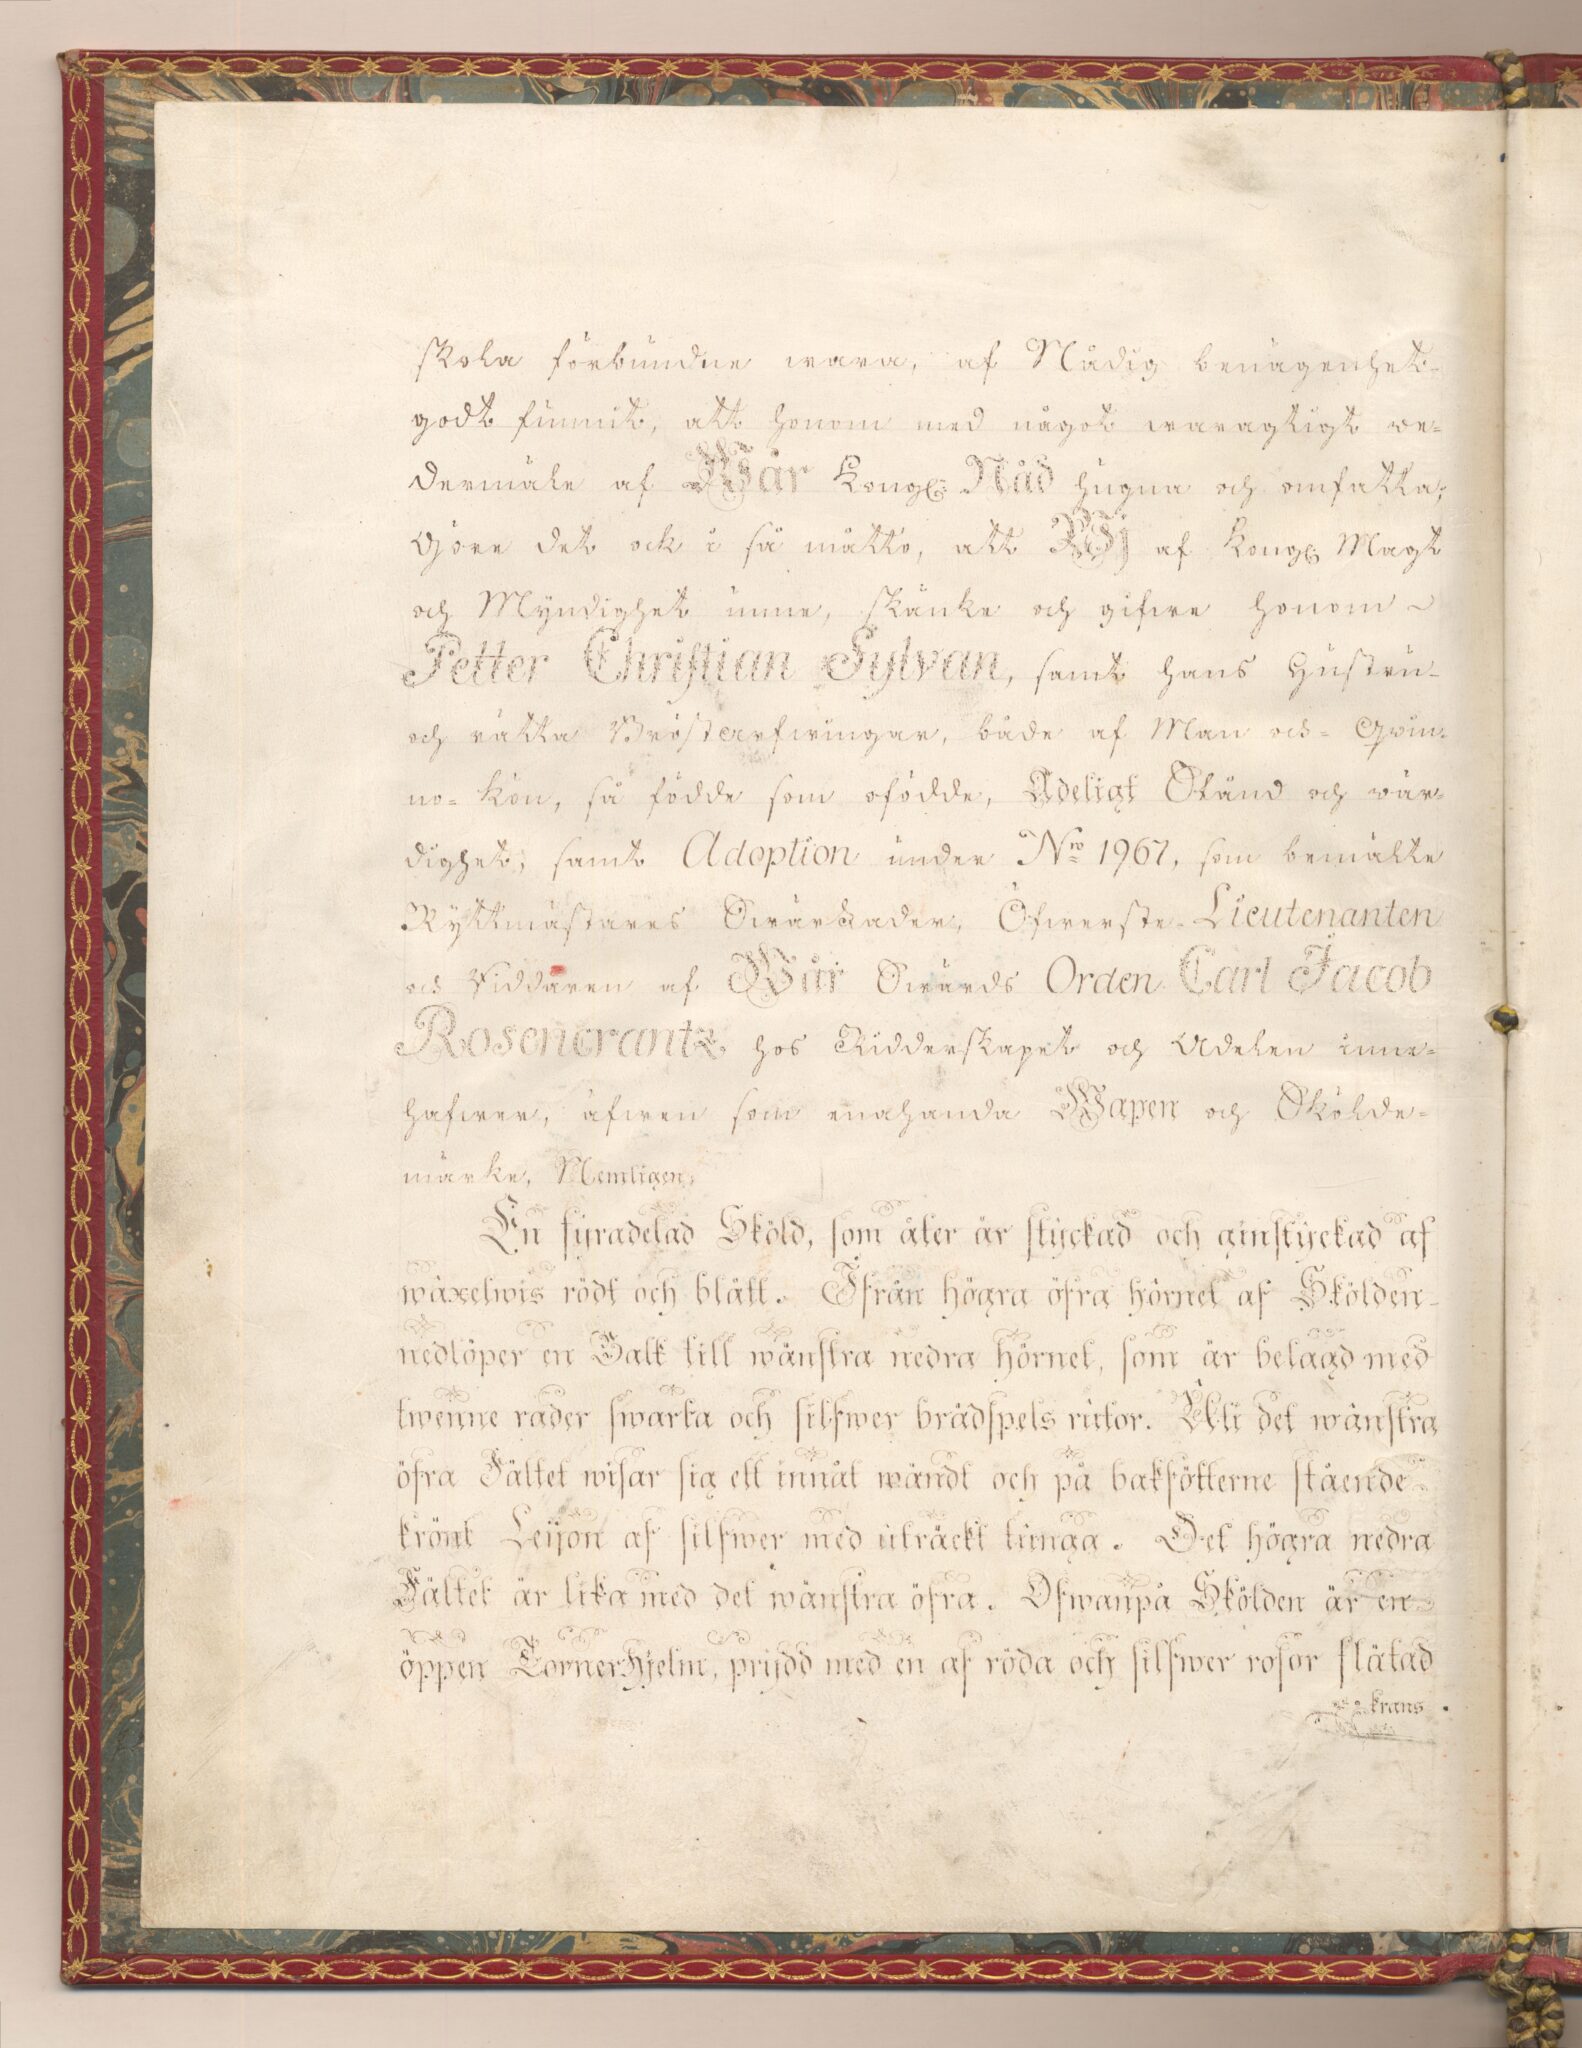 skola förbundne wara, af Nådig benägenhet-
godt funnit, att honom med något waragtigt we-
dermäle af Wår Kongl: Nåd hugna och omfatta;
Göre det ock i så måtto, att Wij af Kongl Magt
och Myndighet unne, skänke och gifwe honom ~
Petter Christian Sylvan, samt hans Hustru-
och rätta Bröstarfwingar, både af Man och= Qwin-
no= kön, så födde som ofödde, Adeligt Stånd och wär-
dighet, samt Adoption under Nro 1967, som bemälte
Ryttmästares Swärfader, Öfwerste- Lieutenanten
och Riddaren af Wår Swärds Orden Carl Jacob
Rosencrantz hos Ridderskapet och Adelen inne-
hafwer, äfwen som enahanda Wapen och Skölde-
märke, Nemligen;
En fyradelad Sköld, som åter är styckad och ginstyckad af
wäxelwis rödt och blått. Ifrån högra öfra hörnet af Skölden-
nedlöper en Balk till wänstra nedra hörnet, som är belagd med
twenne rader swarta och silfwer brädspels rutor. Uti det wänstra
öfra Fältet wisar sig ett innåt wändt och på bakfötterne stående
krönt Leijon af silfwer med uträckt tunga. Det högra nedra
Fältet är lika med det wänstra öfra. Ofwanpå Skölden är en
öppen TornerHjelm, prijdd med en af röda och silfwer rosor flätad
krans.